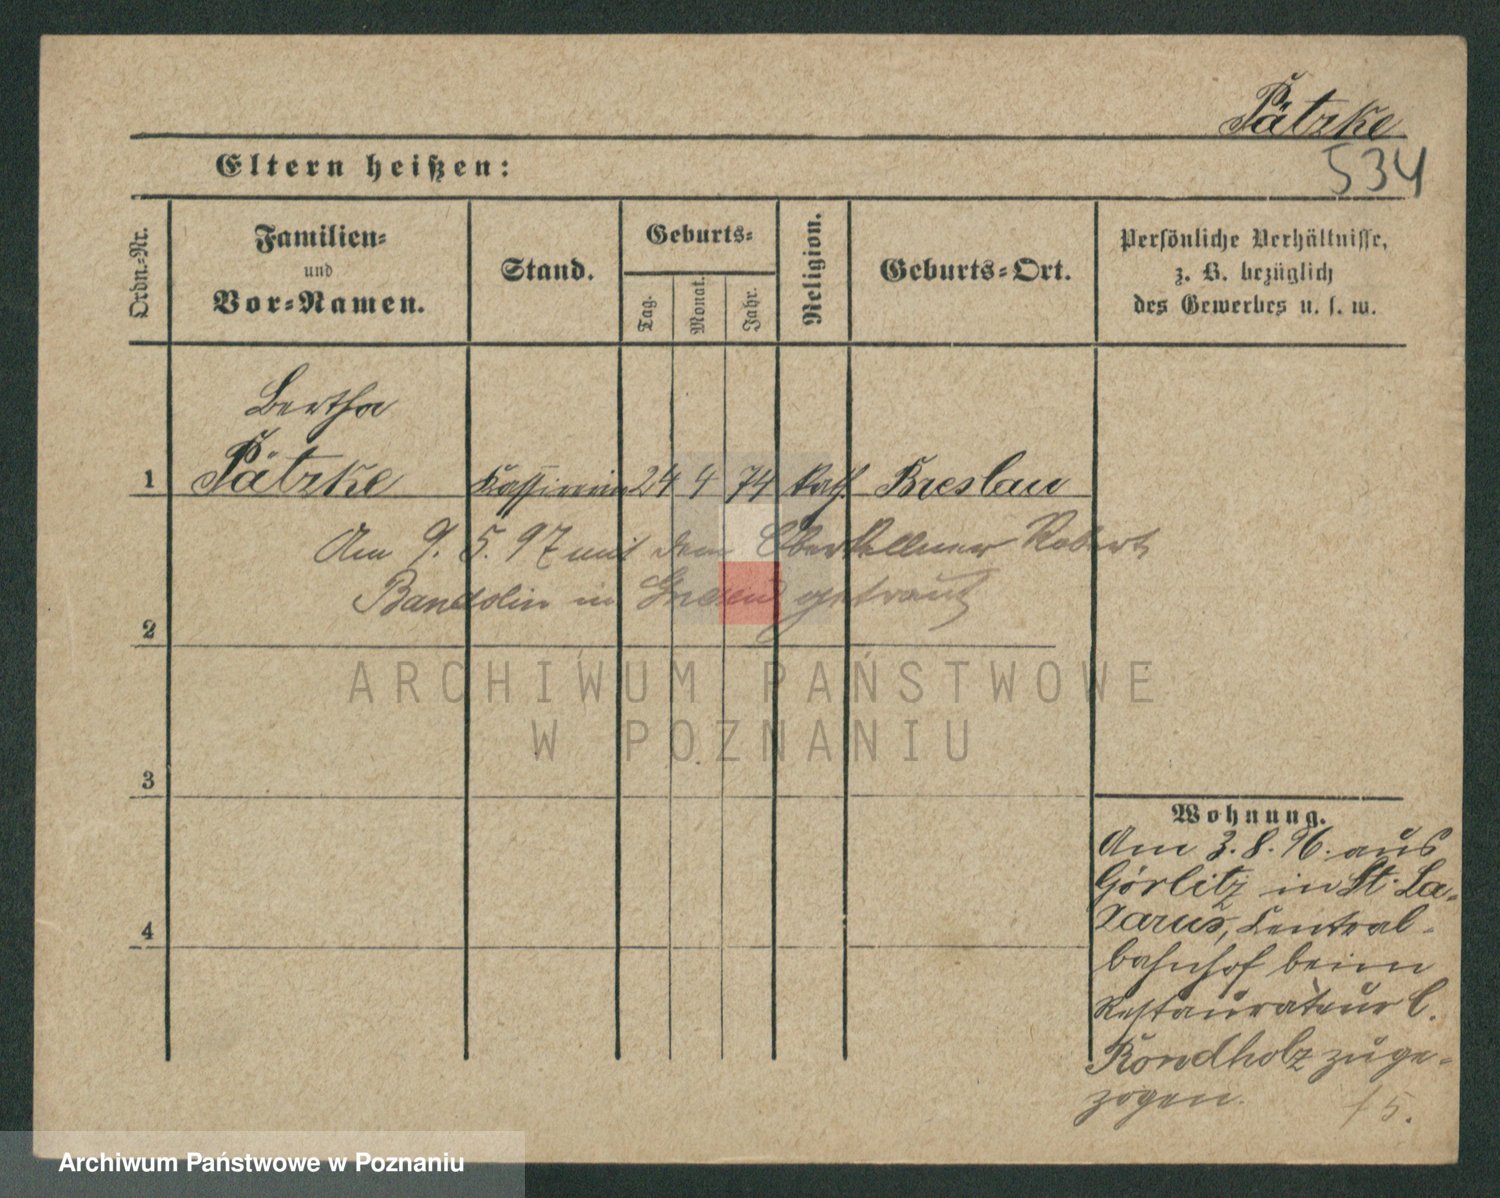 Pätzke
534
Eltern heißen:
Ordn.-Nr.
Familien-
und
Vor-Namen.
Stand.
Geburts-
Tag.
Monat.
Jahr.
Religion.
Geburts-Ort.
Persönliche Verhältnisse,
z. B. bezüglich
des Gewerbes u. s. w.
Bertha
1 Pätzke Kassirerin 24 4 74 kath. Breslau
Am 9. 5. 97 mit dem Oberkellner Robert
Bandolin in Gnesen getraut
2
ARCHIWUM PAŃSTWOWE
W POZNANIU
3
Wohnung.
Am 3. 8. 96. aus
Görlitz in St. La-
zarus, Central-
bahnhof beim
Restaurateur C.
Rondholz zuge-
zogen.
15.
4
Archiwum Państwowe w Poznaniu